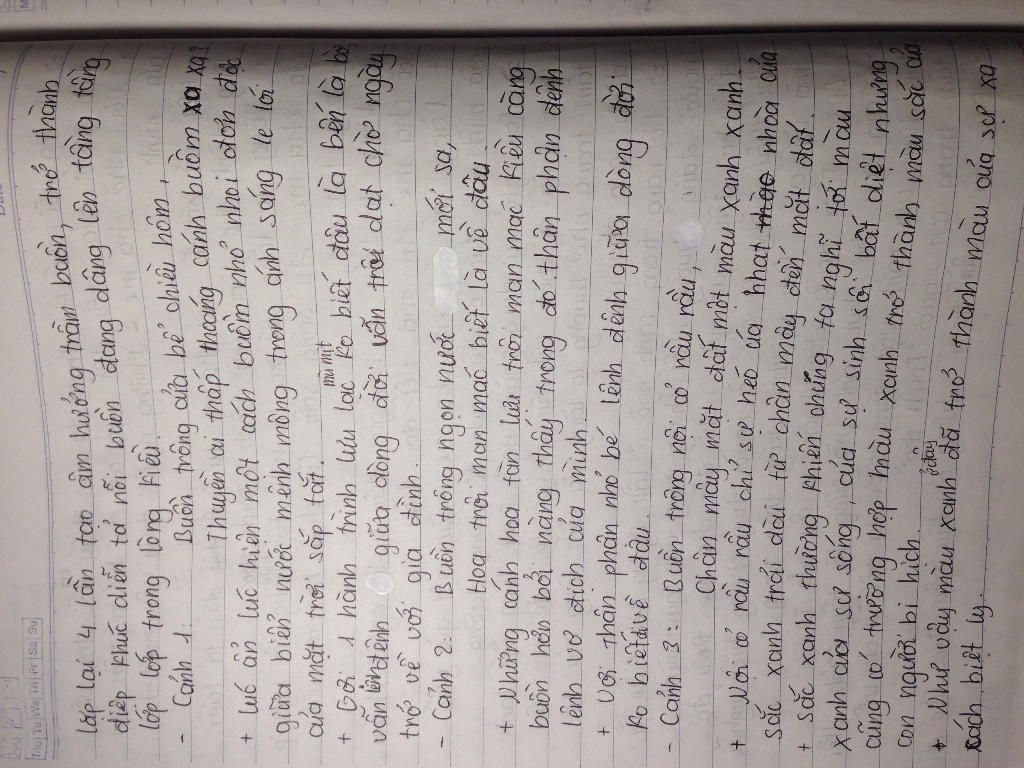 lặp lại 4 lần tạo âm hưởng trầm buồn, trở thành
điệp khúc diễn tả nỗi buồn đang dâng lên tầng tầng
lớp lớp trong lòng Kiều.
- Cảnh 1: Buồn trông cửa bể chiều hôm,
Thuyền ai thấp thoáng cánh buồm xa xa?
+ Lúc ẩn lúc hiện một cách buồm nhỏ nhoi đơn độc
giữa biển nước mênh mông trong ánh sáng le lói
của mặt trời sắp tắt.
+ Gợi 1 hành trình lưu lạc mù mịt ko biết đâu là bến là bờ,
vẫn lênh đênh giữa dòng đời vẫn trôi dạt chờ ngày
trở về với gia đình.
- Cảnh 2: Buồn trông ngọn nước mới sa,
Hoa trôi man mác biết là về đâu.
+ Những cánh hoa tàn lụi trôi man mác Kiều càng
buồn hơn bởi nàng thấy trong đó thân phận dênh
lênh vô định của mình.
+ Với thân phận nhỏ bé lênh đênh giữa dòng đời
ko biết đi về đâu.
- Cảnh 3: Buồn trông nội cỏ rầu rầu,
Chân mây mặt đất một màu xanh xanh.
+ Nội cỏ rầu rầu chỉ sự héo úa nhạt nhòa của
sắc xanh trải dài từ chân mây đến mặt đất.
+ Sắc xanh thường khiến chúng ta nghĩ tới màu
xanh của sự sống, của sự sinh sôi bất diệt nhưng
cũng có trường hợp màu xanh trở thành màu sắc của
con người bi kịch.
+ Như vậy màu xanh ở đây đã trở thành màu của sự xa
cách biệt ly.